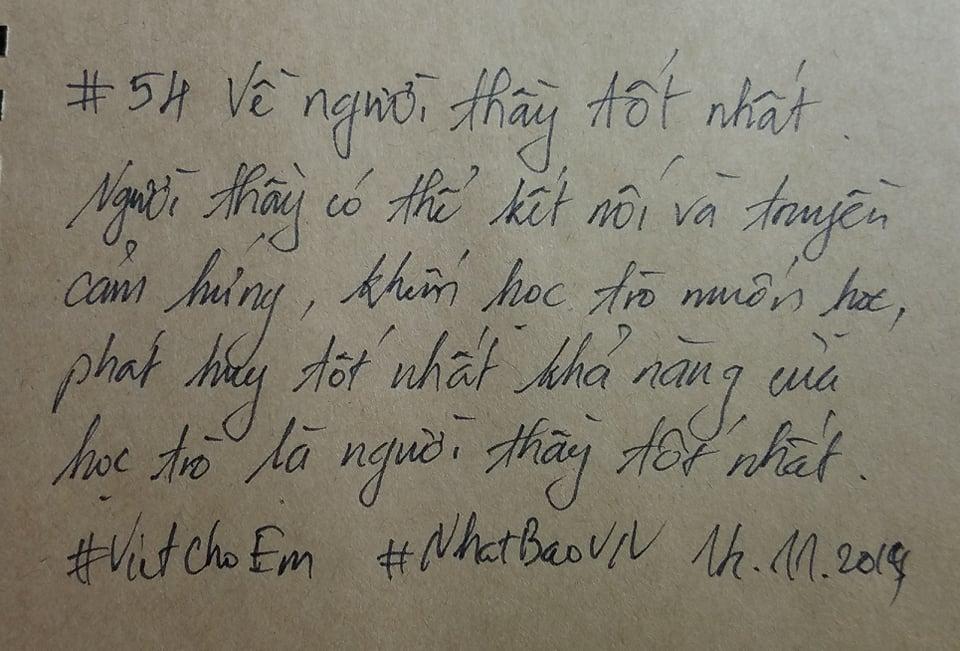 #54 Về người thầy tốt nhất.
Người thầy có thể kết nối và truyền
cảm hứng, khiến học trò muốn học,
phát huy tốt nhất khả năng của
học trò là người thầy tốt nhất.
#VietchoEm #NhatBaoVN 14.11.2019